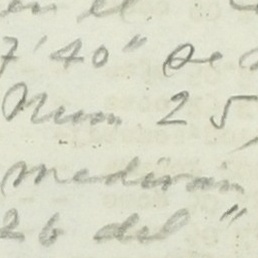 en el
7' 40" se
Num. 25,
medirán
26 del "